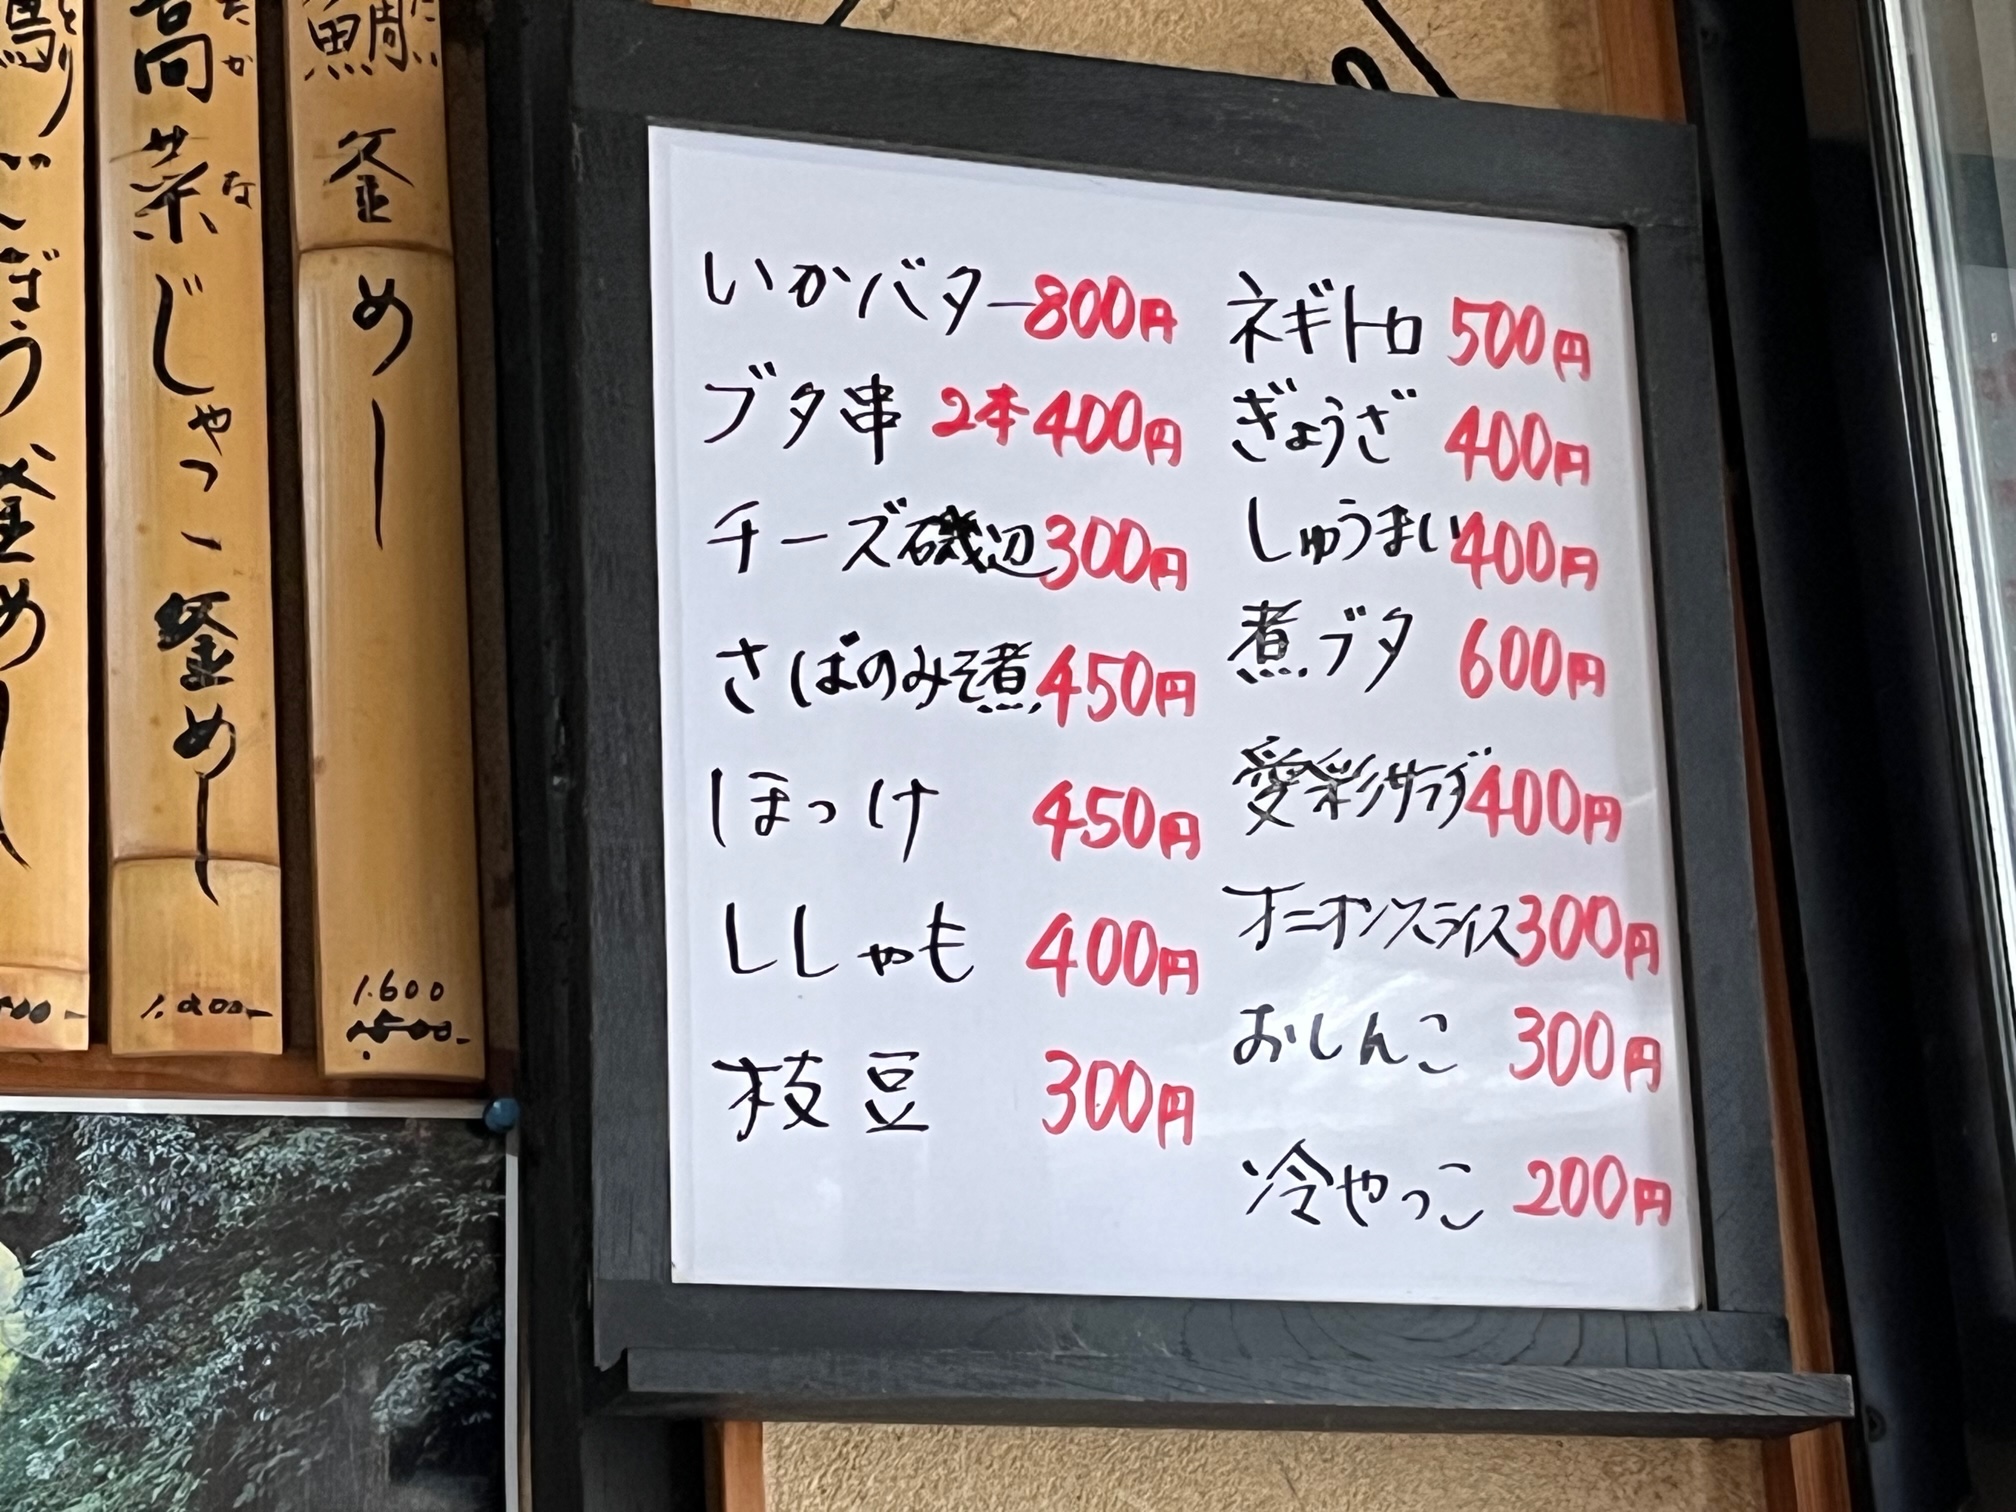 いかバター 800円
ブタ串 2本 400円
チーズ磯辺 300円
さばのみそ煮 450円
ほっけ 450円
ししゃも 400円
枝豆 300円
ネギトロ 500円
ぎょうざ 400円
しゅうまい 400円
煮ブタ 600円
愛彩サラダ 400円
オニオンスライス 300円
おしんこ 300円
冷やっこ 200円
鯛釜めし
たい
1.600
高菜じゃこ釜めし
たかな
ごぼう釜めし
とり